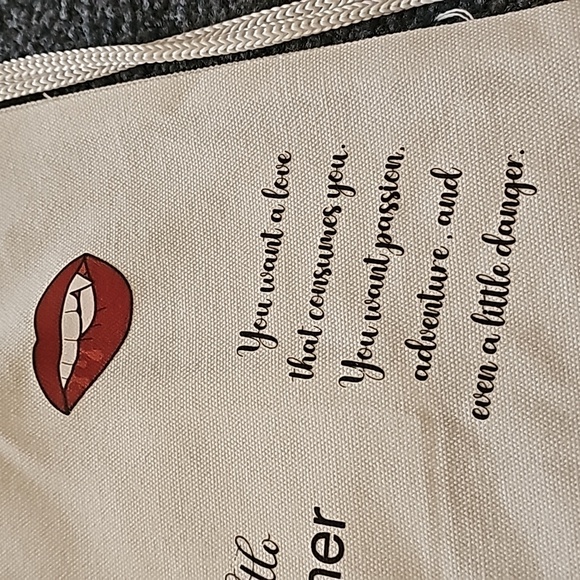 You want a love
that consumes you.
You want passion,
adventure , and
even a little danger.